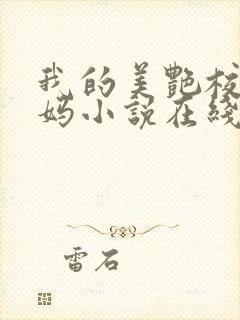 我的美艷校
妈小說在綫
雷石